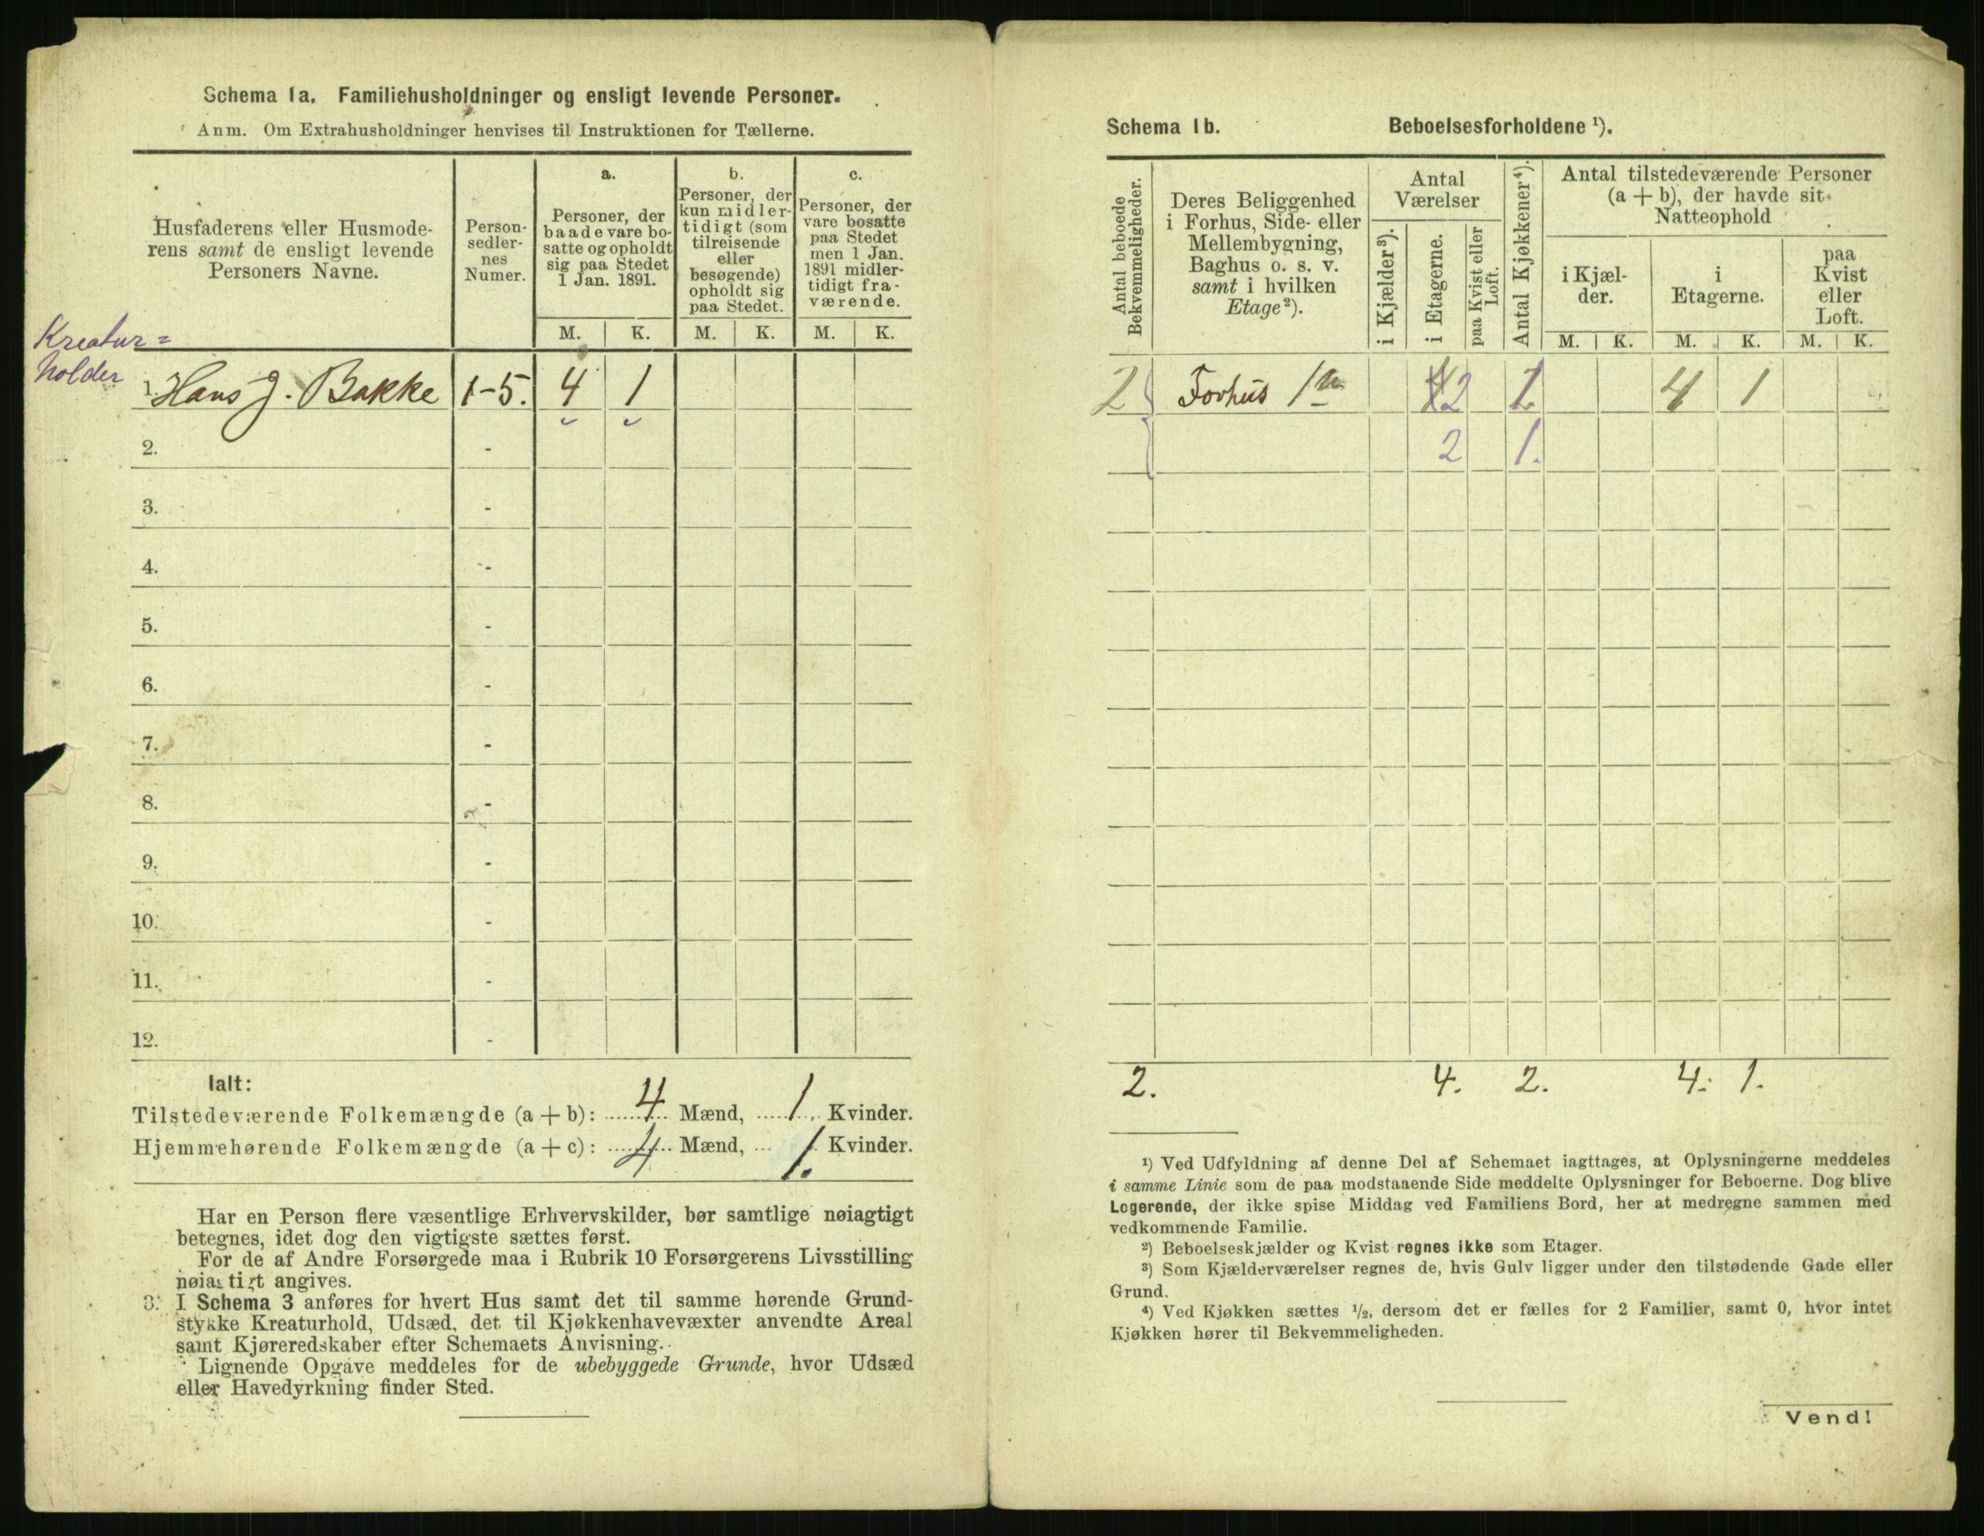 Schema 1a. Familiehusholdninger og ensligt levende Personer.
Anm. Om Extrahusholdninger henvises til Instruktionen for Tællerne.
Husfaderens eller Husmode-
rens samt de ensligt levende
Personers Navne.
Person-
sedler-
nes
Numer.
a.
Personer, der
baade vare bo-
satte og opholdt
sig paa Stedet
1 Jan. 1891.
b.
Personer, der
kun midler-
tidigt (som
tilreisende
eller
besøgende)
opholdt sig
paa Stedet.
c.
Personer, der
vare bosatte
paa Stedet
men 1 Jan.
1891 midler-
tidigt fra-
værende.
M. K. M. K. M. K.
Kreatur=
holder
1. Hans J. Bakke 1-5. 4 1
2. -
3. -
4. -
5. -
6. -
7. -
8. -
9. -
10. -
11. -
12. -
Ialt:
Tilstedeværende Folkemængde (a + b): 4 Mænd, 1 Kvinder.
Hjemmehørende Folkemængde (a + c): 4 Mænd, 1. Kvinder.
Har en Person flere væsentlige Erhvervskilder, bør samtlige nøiagtigt
betegnes, idet dog den vigtigste sættes først.
For de af Andre Forsørgede maa i Rubrik 10 Forsørgerens Livsstilling
nøiagtigt angives.
3. I Schema 3 anføres for hvert Hus samt det til samme hørende Grund-
stykke Kreaturhold, Udsæd, det til Kjøkkenhavevæxter anvendte Areal
samt Kjøreredskaber efter Schemaets Anvisning.
Lignende Opgave meddeles for de ubebyggede Grunde, hvor Udsæd
eller Havedyrkning finder Sted.
Schema 1b. Beboelsesforholdene ¹).
Antal beboede
Bekvemmeligheder.
Deres Beliggenhed
i Forhus, Side- eller
Mellembygning,
Baghus o. s. v.
samt i hvilken
Etage²).
Antal
Værelser
i Kjælder³).
i Etagerne.
paa Kvist eller
Loft.
Antal Kjøkkener⁴).
Antal tilstedeværende Personer
(a + b), der havde sit
Natteophold
i Kjæl-
der.
i
Etagerne.
paa
Kvist
eller
Loft.
M. K. M. K. M. K.
2 Forhus 1 2 1 4 1
2 1.
2. 4. 2. 4. 1.
¹) Ved Udfyldning af denne Del af Schemaet iagttages, at Oplysningerne meddeles
i samme Linie som de paa modstaaende Side meddelte Oplysninger for Beboerne. Dog blive
Logerende, der ikke spise Middag ved Familiens Bord, her at medregne sammen med
vedkommende Familie.
²) Beboelseskjælder og Kvist regnes ikke som Etager.
³) Som Kjælderværelser regnes de, hvis Gulv ligger under den tilstødende Gade eller
Grund.
⁴) Ved Kjøkken sættes ½, dersom det er fælles for 2 Familier, samt 0, hvor intet
Kjøkken hører til Bekvemmeligheden.
Vend!